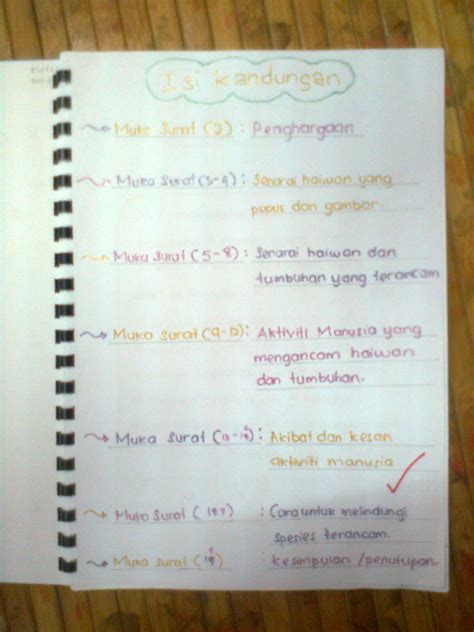 Isi kandungan
Muka Surat (2) : Penghargaan
Muka Surat (3-4) : Senarai haiwan yang
pupus dan gambar.
Muka Surat (5-8) : Senarai haiwan dan
tumbuhan yang terancam
Muka Surat (9-12) : Aktiviti Manusia yang
mengancam haiwan
dan tumbuhan.
Muka Surat : Akibat dan kesan
aktiviti manusia
Muka Surat : Cara untuk melindungi
spesies terancam.
Muka Surat : kesimpulan /penutupan.